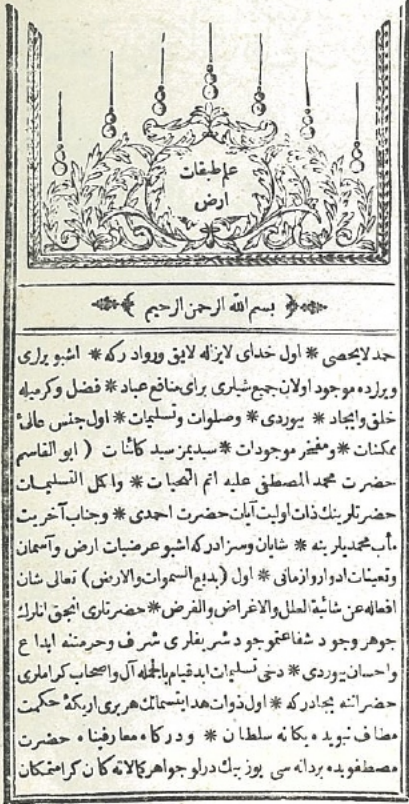 علم طبقات
ارض
بسم الله الرحمن الرحيم
حمد لايحصى * اول خداى لايزاله لايق وروادركه * اشبو يرلرى
ويرلرده موجود اولان جميع شيلرى براى منافع عباد * فضل وكرميله
خلق وايجاد * بيوردى * وصلوات وتسليمات * اول جنس عالئ
ممكنات * ومفخر موجودات * سيديمز سيد كائنات ( ابو القاسم
حضرت محمد المصطفى عليه اتم التحيات * واكمل التسليمات
حضرتلرينك ذات اوليت آيات حضرت احمدى * وجناب آخريت
مأب محمديلرينه * شايان وسزادركه اشبو عرضيات ارض وآسمان
وتعينات ادوار وازمانى * اول (بديع السموات والارض) تعالى شان
افعاله عن شائبة العلل والاغراض والفرض * حضرتلرى انجق انلرك
جوهر وجود شفاعتموجود شريفلرى شرف وحرمتنه ابداع
واحسان بيوردى * دخى تسليمات ابد قيام بالجمله آل واصحاب كراملرى
حضراتنه بجادركه * اول ذوات هدايتسماتك هر برى اريكهٔ حكمت
مضاف نبويده يكانه سلطان * ودركاه معارفپناه حضرت
مصطفويده بردانه سى يوز بيك درلو جواهر كمالاته كان كرامتمكان